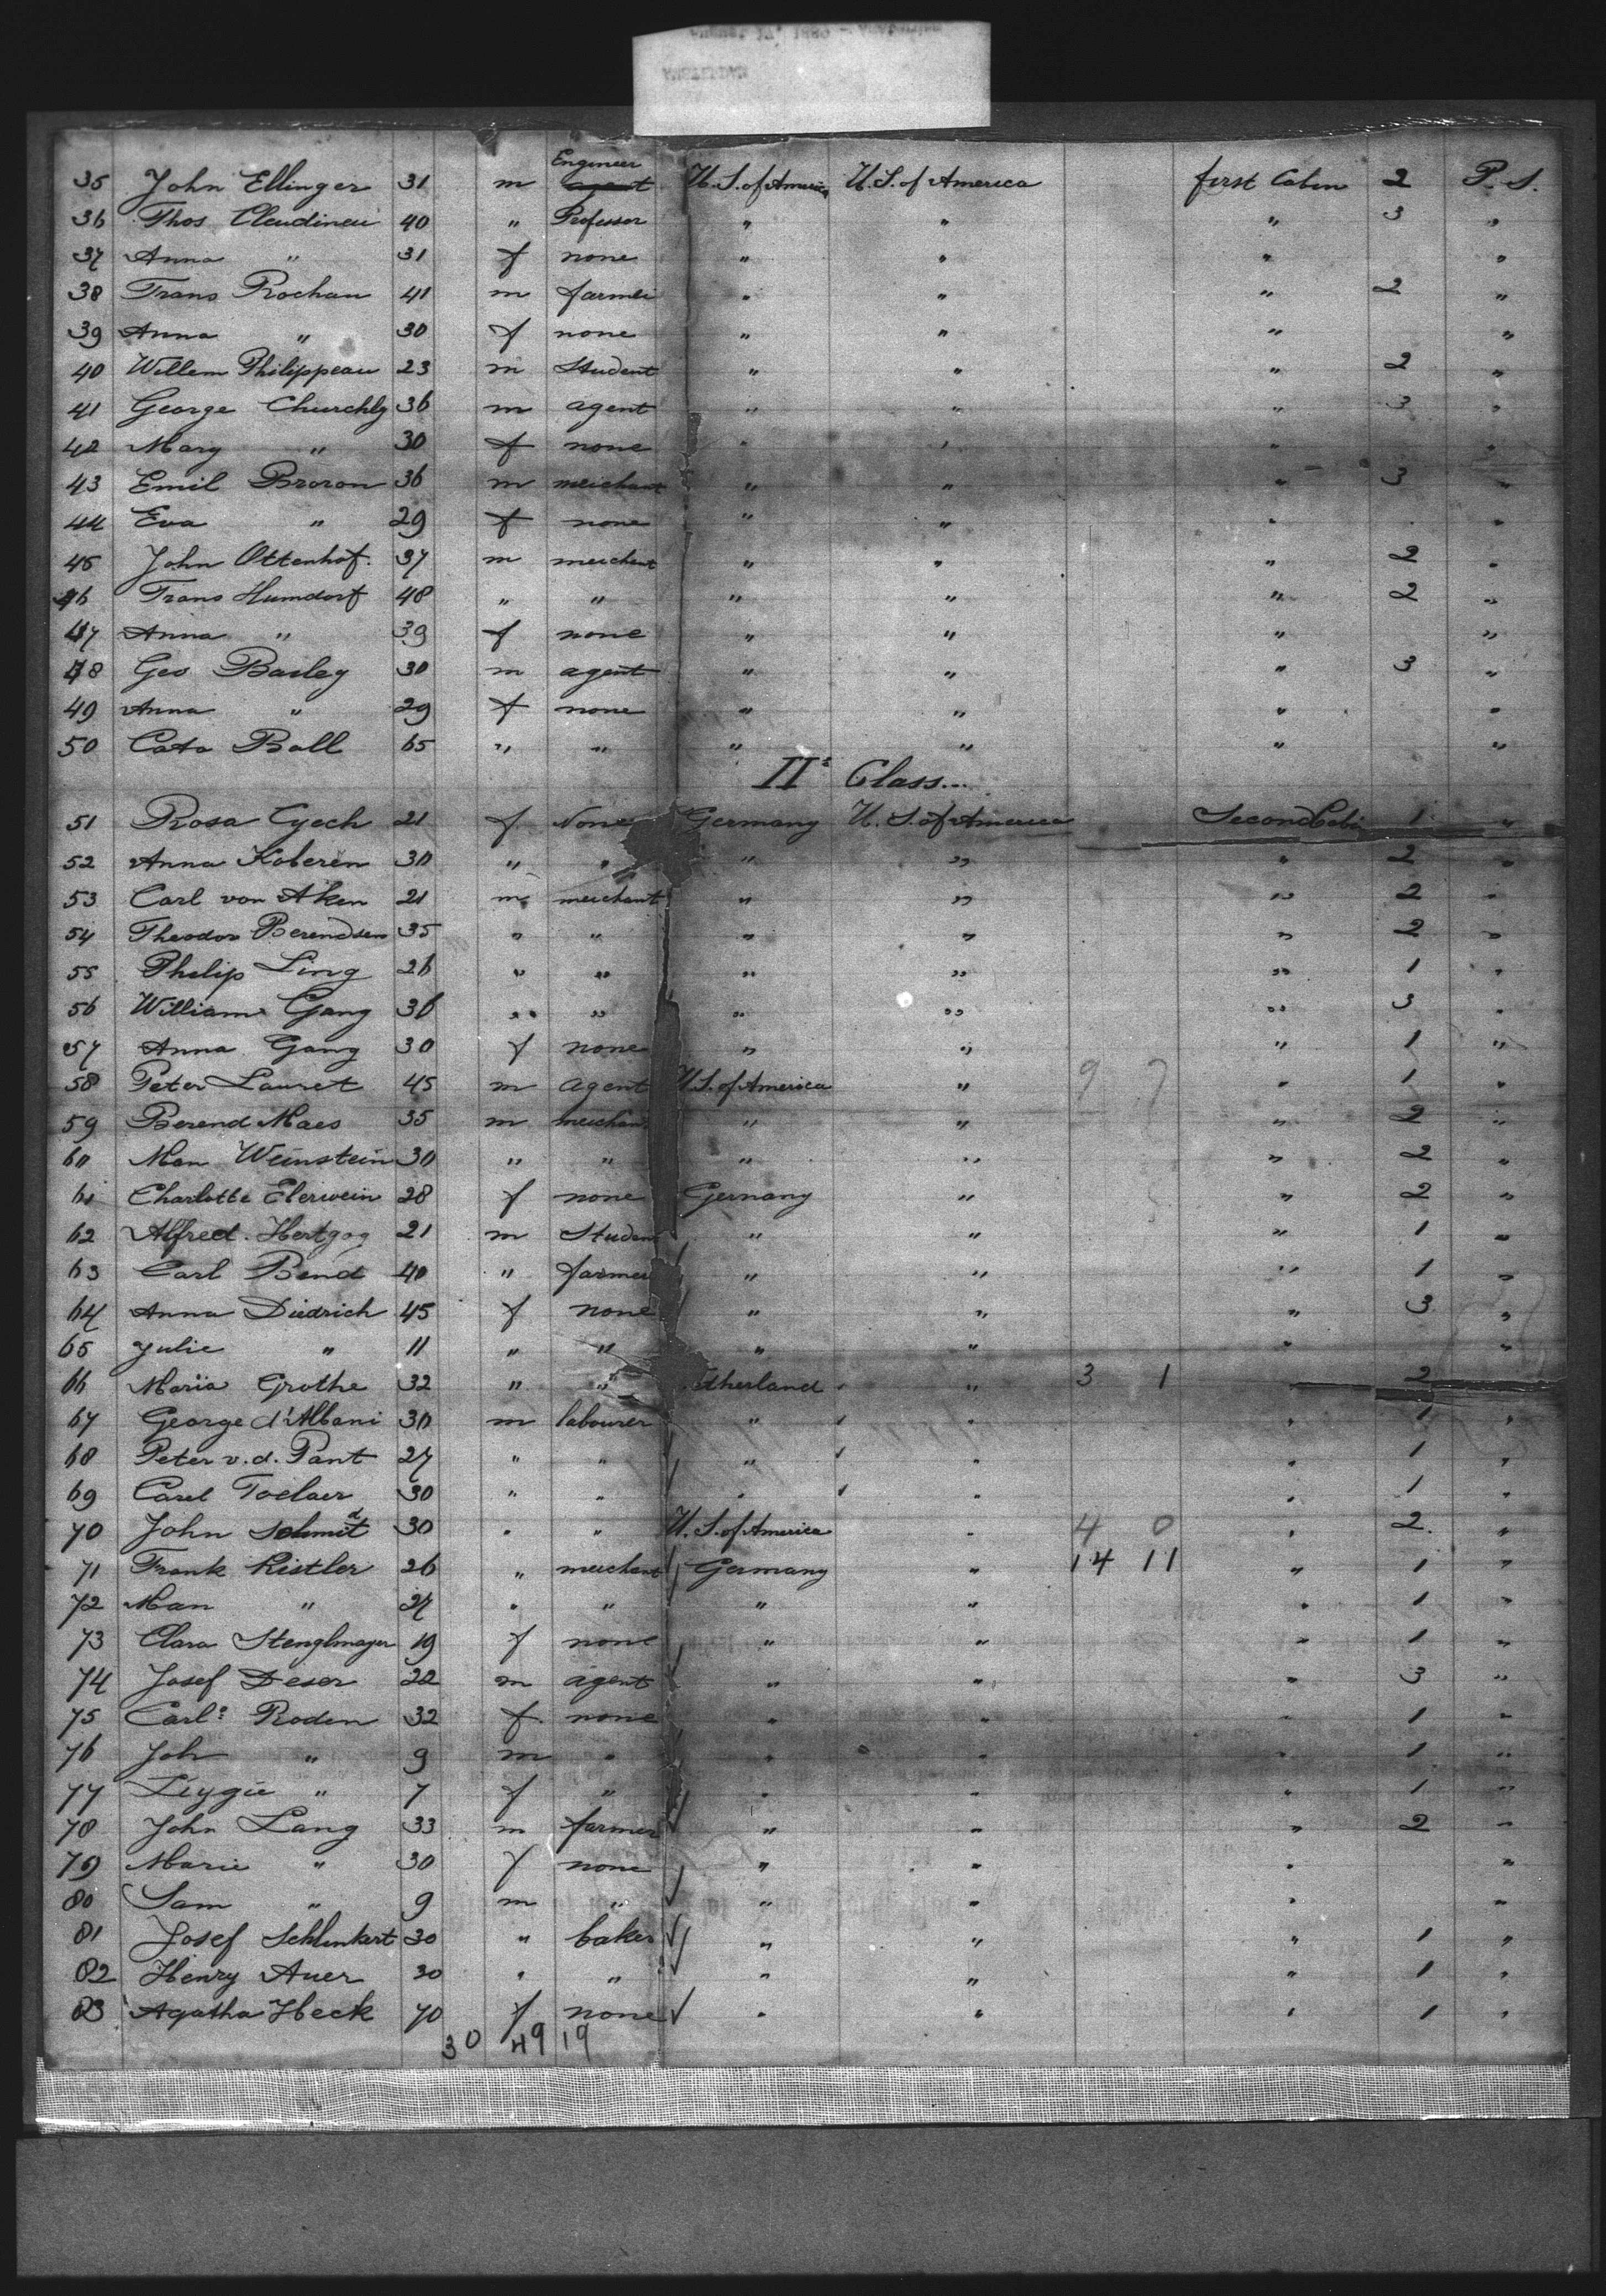 August 17, 1889 - Amsterdam
AMSTERDAM
Engineer
35 John Ellinger 31 m agent U.S. of America U.S. of America first Cabin 2 P. S.
36 Thos Claudineu 40 " Professor " " " 3 "
37 Anna " 31 f none " " " "
38 Frans Rochau 41 m farmer " " " 2 "
39 Anna " 30 f none " " " "
40 Willem Philippeau 23 m Student " " " 2 "
41 George Churchly 36 m agent " " " 3 "
42 Mary " 30 f none " " " "
43 Emil Broron 36 m merchant " " " 3 "
44 Eva " 29 f none " " " "
45 John Ottenhof. 37 m merchant " " " 2 "
46 Frans Humdorf 48 " " " " " 2 "
47 Anna " 39 f none " " " "
48 Geo Basley 30 m agent " " " 3 "
49 Anna " 29 f none " " " "
50 Cato Ball 65 " " " " " "
IIe Class...
51 Rosa Cyech 21 f None Germany U.S. of America Second Cabin 1 "
52 Anna Koberen 30 " " " " " 2 "
53 Carl von Aken 21 m merchant " " " 2 "
54 Theodor Berendsen 35 " " " " " 2 "
55 Philip Ling 26 " " " " " 1 "
56 William Gang 36 " " " " " 3 "
57 Anna Gang 30 f none " " " 1 "
58 Peter Lauret 45 m agent U.S. of America " 9 7 " 1 "
59 Berend Maes 35 m merchant " " " 2 "
60 Man Weinstein 30 " " " " " 2 "
61 Charlotte Elerwein 28 f none Germany " " 2 "
62 Alfred Hertzog 21 m Student " " " 1 "
63 Carl Bend 40 " farmer " " " 1 "
64 Anna Diedrich 45 f none " " " 3 "
65 Julie " 11 " " " " " "
66 Maria Grothe 32 " " etherland " 3 1 " 2 "
67 George d'Albani 30 m labourer " " " 1 "
68 Peter v.d. Pant 27 " " " " " 1 "
69 Carel Toelaer 30 " " " " " 1 "
70 John Schmidt 30 " " U.S. of America " 4 0 " 2 "
71 Frank Kistler 26 " merchant Germany " 14 11 " 1 "
72 Man " 24 " " " " " 1 "
73 Clara Stenglmayer 19 f none " " " 1 "
74 Josef Deser 22 m agent " " " 3 "
75 Carl: Roden 32 f none " " " 1 "
76 Joh " 9 m " " " " 1 "
77 Leyzie " 7 f " " " " 1 "
78 John Lang 33 m farmer " " " 2 "
79 Marie " 30 f none " " " "
80 Sam " 9 m " " " " "
81 Josef Schlinkert 30 " baker " " " 1 "
82 Henry Auer 30 " " " " " 1 "
83 Agatha Heck 70 f none " " " 1 "
30 49 19